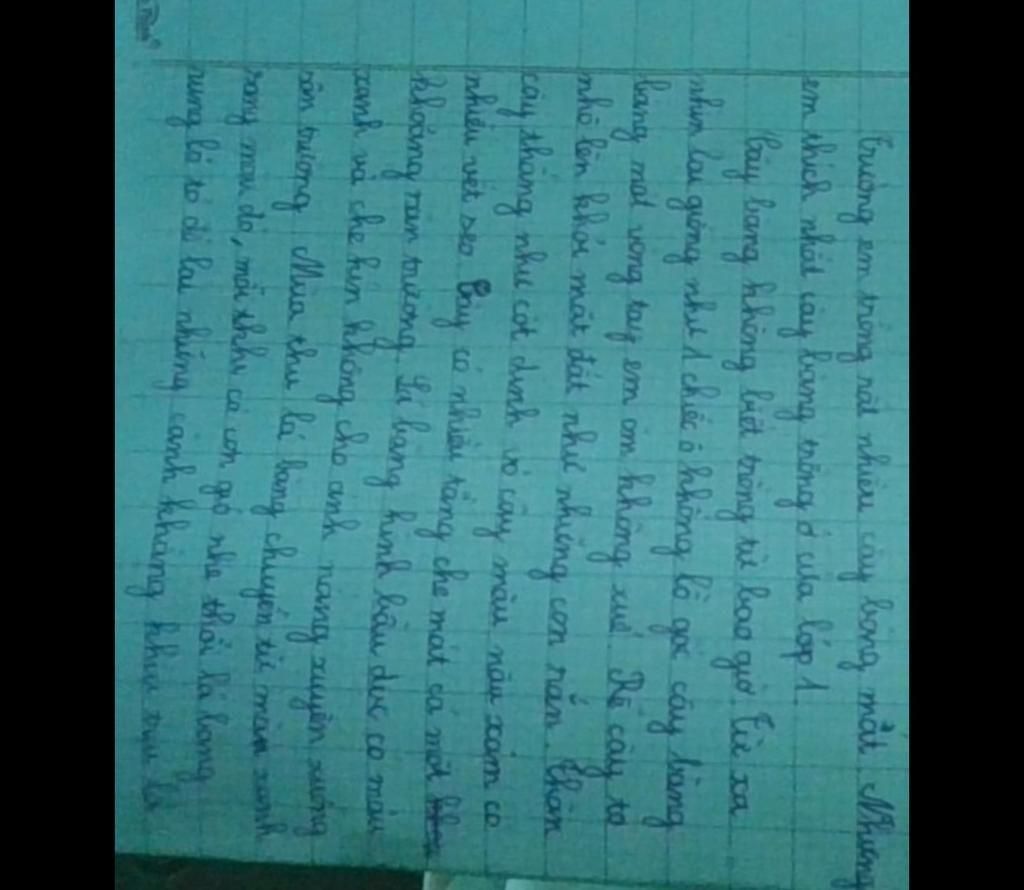 Trường em trồng rất nhiều cây bóng mát. Nhưng
em thích nhất cây bàng trồng ở cửa lớp 1.
Cây bàng không biết trồng từ bao giờ. Từ xa
nhìn lại giống như 1 chiếc ô khổng lồ gốc cây bàng
bằng một vòng tay em ôm không xuể. Rễ cây to
nhô lên khỏi mặt đất như những con rắn. Thân
cây thẳng như cột đình vỏ cây màu nâu xám có
nhiều vết sẹo Cây có nhiều tầng che mát cả một
khoảng sân trường. Lá bàng hình bầu dục có màu
xanh và che kín không cho ánh nắng xuyên xuống
sân trường Mùa thu lá bàng chuyển từ màu xanh
sang màu đỏ, mỗi khi có cơn gió nhẹ thổi lá bàng
rụng lá to để lại những cành khẳng khiu